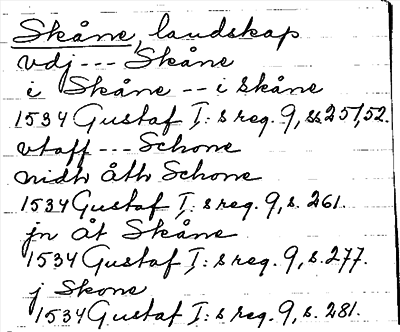 Skåne, landskap
vdj --- Skåne
i Skåne -- i skåne
1534 Gustaf I:s reg. 9, ss 251, 52.
vtaff --- Schone
nidh åth Schone
1534 Gustaf I:s reg. 9, s. 261.
jn åt Skåne
1534 Gustaf I:s reg. 9, s. 277.
j Skone
1534 Gustaf I:s reg. 9, s. 281.